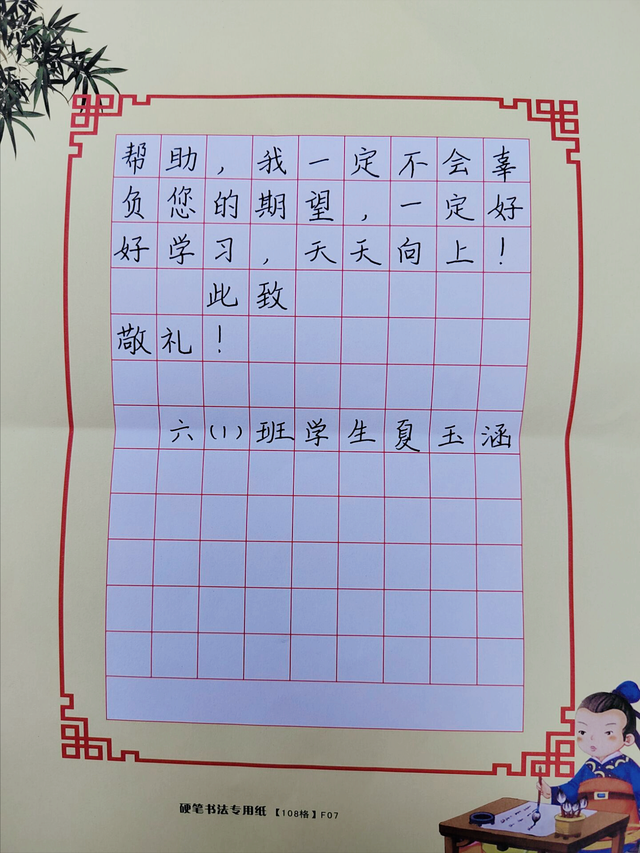 帮助，我一定不会辜
负您的期望，一定好
好学习，天天向上！
此致
敬礼！
六(1)班学生夏玉涵
硬笔书法专用纸【108格】F07